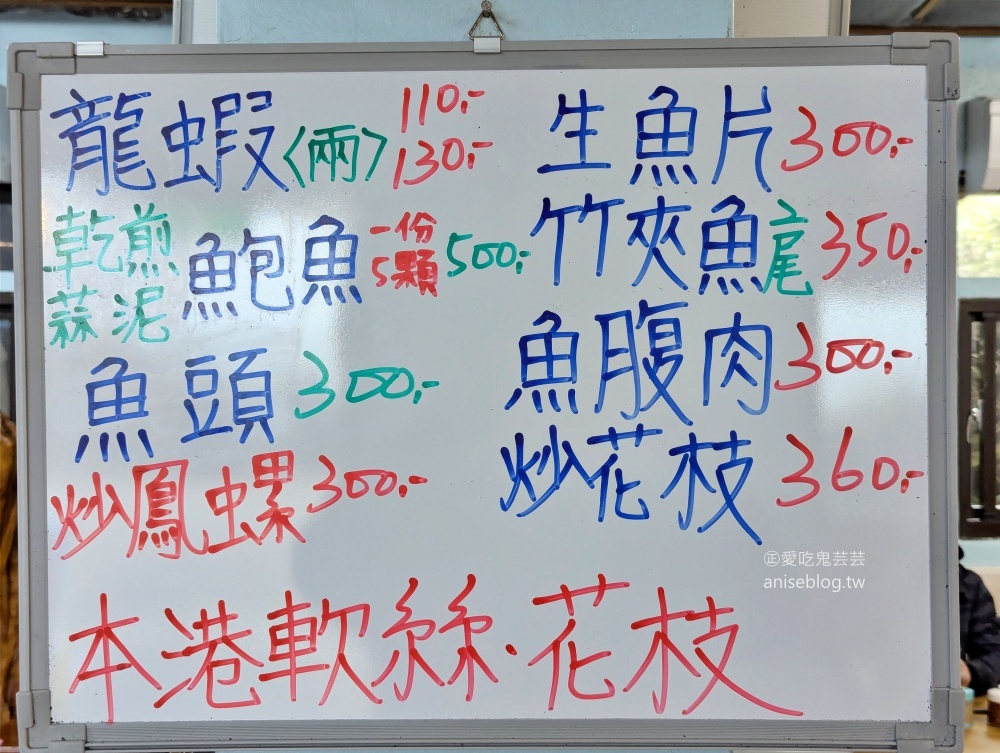 龍蝦〈兩〉110.-
130.-
乾煎
蒜泥
鮑魚
一份
5顆
500.-
魚頭 300.-
炒鳳螺 300.-
生魚片 300.-
竹夾魚尾 350.-
魚腹肉 300.-
炒花枝 360.-
本港軟絲.花枝
㊣愛吃鬼芸芸
aniseblog.tw